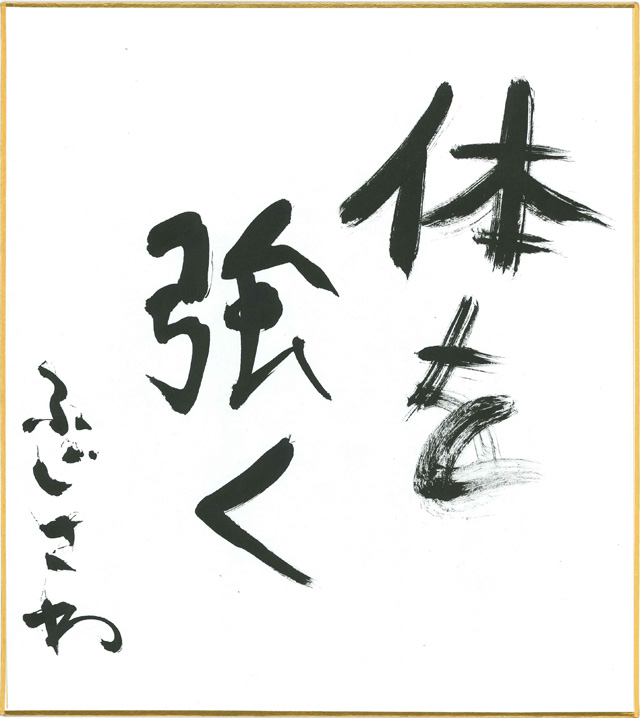 体を
強く
ふじさわ